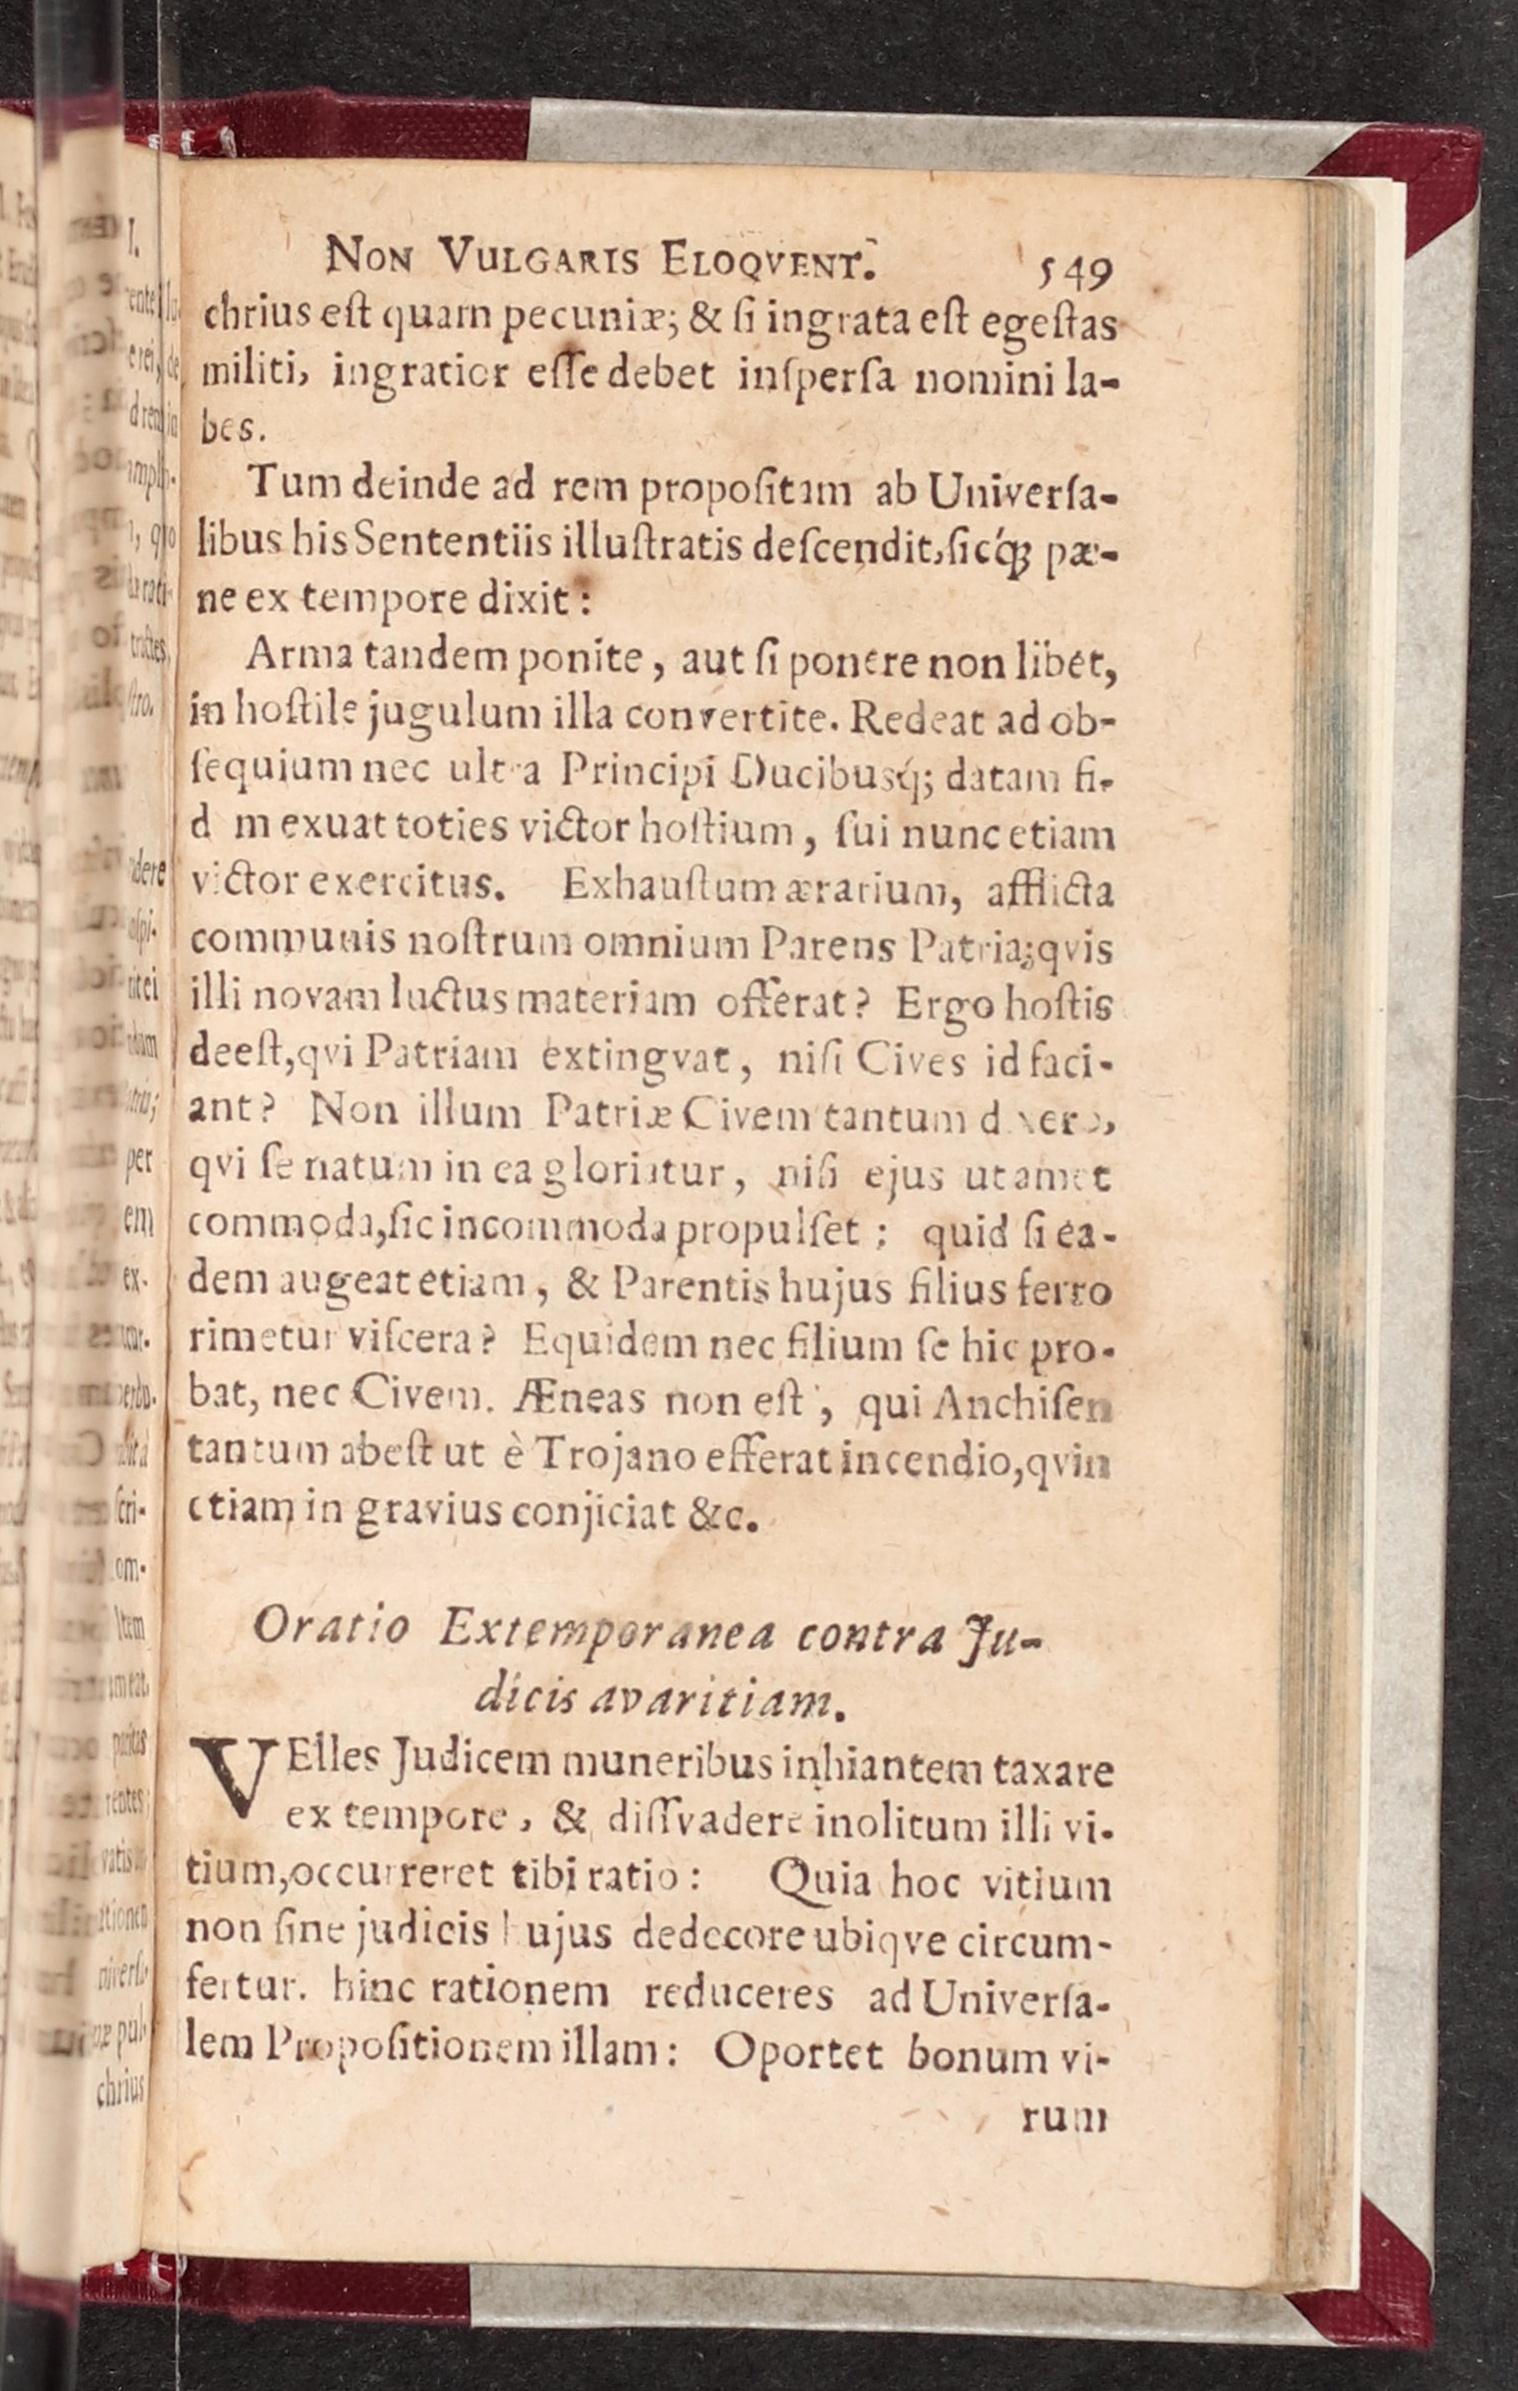 NON VULGARIS ELOQVENT. 549
chrius eſt quam pecuniæ; & ſi ingrata eſt egeſtas
militi, ingratior eſſe debet inſperſa nomini la-
bes.
Tum deinde ad rem propoſitam ab Univerſa-
libus his Sententiis illuſtratis deſcendit, ſicq́; pæ-
ne ex tempore dixit:
Arma tandem ponite, aut ſi ponere non libet,
in hoſtile jugulum illa convertite. Redeat ad ob-
ſequium nec ultra Principi Ducibusq́; datam fi-
d m exuat toties victor hoſtium, ſui nunc etiam
victor exercitus. Exhauſtum ærarium, afflicta
communis noſtrum omnium Parens Patria; qvis
illi novam luctus materiam offerat? Ergo hoſtis
deeſt, qvi Patriam extingvat, niſi Cives id faci-
ant? Non illum Patriæ Civem tantum dixero,
qvi ſe natum in ea gloriatur, niſi ejus ut amet
commoda, ſic incommoda propulſet; quid ſi ea-
dem augeat etiam, & Parentis hujus filius ferro
rimetur viſcera? Equidem nec filium ſe hic pro-
bat, nec Civem. Æneas non eſt, qui Anchiſen
tantum abeſt ut è Trojano efferat incendio, qvin
etiam in gravius conjiciat &c.
Oratio Extemporanea contra Ju-
dicis avaritiam.
VElles Judicem muneribus inhiantem taxare
ex tempore, & diſſvadere inolitum illi vi-
tium, occurreret tibi ratio: Quia hoc vitium
non ſine judicis hujus dedecore ubiqve circum-
fertur. hinc rationem reduceres ad Univerſa-
lem Propoſitionem illam: Oportet bonum vi-
rum